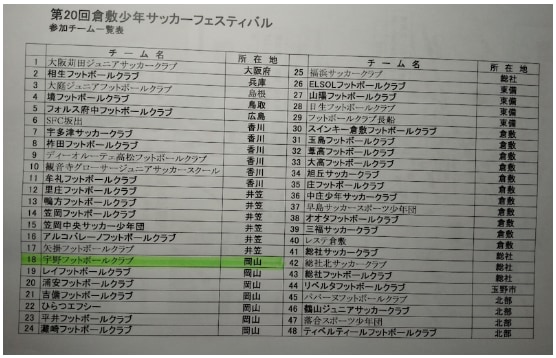 第20回倉敷少年サッカーフェスティバル
参加チーム一覧表
チーム名 所在地
1 大阪苅田ジュニアサッカークラブ 大阪府
2 相生フットボールクラブ 兵庫
3 大庭ジュニアフットボールクラブ 島根
4 境フットボールクラブ 鳥取
5 フォルス府中フットボールクラブ 広島
6 SFC坂出 香川
7 宇多津サッカークラブ 香川
8 柞田フットボールクラブ 香川
9 ディーオルーテェ高松フットボールクラブ 香川
10 観音寺グローサージュニアサッカースクール 香川
11 牟礼フットボールクラブ 香川
12 里庄フットボールクラブ 井笠
13 鴨方フットボールクラブ 井笠
14 笠岡フットボールクラブ 井笠
15 笠岡中央サッカー少年団 井笠
16 アルコバレーノフットボールクラブ 井笠
17 矢掛フットボールクラブ 井笠
18 宇野フットボールクラブ 岡山
19 レイフットボールクラブ 岡山
20 浦安フットボールクラブ 岡山
21 吉備フットボールクラブ 岡山
22 ひらつエフシー 岡山
23 平井フットボールクラブ 岡山
24 灘崎フットボールクラブ 岡山
チーム名 所在地
25 福浜サッカークラブ 総社
26 ELSOLフットボールクラブ 東備
27 山陽フットボールクラブ 東備
28 日生フットボールクラブ 東備
29 フットボールクラブ長船 東備
30 スインキー倉敷フットボールクラブ 倉敷
31 玉島フットボールクラブ 倉敷
32 葦高フットボールクラブ 倉敷
33 大高フットボールクラブ 倉敷
34 旭丘サッカークラブ 倉敷
35 庄フットボールクラブ 倉敷
36 中庄少年サッカークラブ 倉敷
37 早島サッカースポーツ少年団 倉敷
38 オオタフットボールクラブ 倉敷
39 三福サッカークラブ 倉敷
40 レステ倉敷 倉敷
41 総社サッカークラブ 総社
42 総社北サッカークラブ 総社
43 総社フットボールクラブ 総社
44 リベルタフットボールクラブ 玉野市
45 パパーズフットボールクラブ 北部
46 鶴山ジュニアサッカークラブ 北部
47 落合スポーツ少年団 北部
48 ティベルティールフットボールクラブ 北部